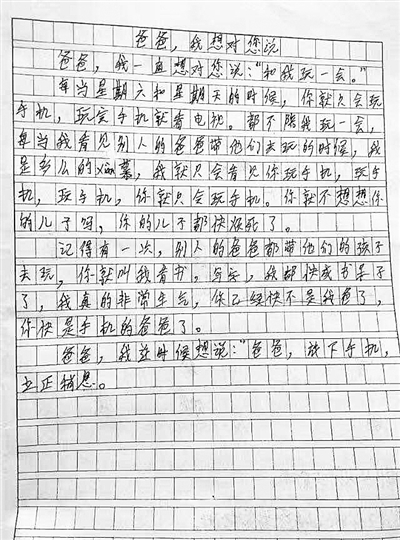 爸爸，我想对您说
爸爸，我一直想对您说："和我玩一会。"
每当星期六和星期天的时候，你就只会玩
手机，玩完手机就看电视。都不陪我玩一会，
每当我看见别人的爸爸带他们去玩的时候，我
是多么的xian慕，我就只会看见你玩手机，玩手
机，玩手机，你就只会玩手机。你就不想想你
的儿子吗，你的儿子都快没死了。
记得有一次，别人的爸爸都带他们的孩子
去玩，你就叫我看书。写字，我都快成书呆子
了，我真的非常生气，你已经快不是我爸了，
你快是手机的爸爸了。
爸爸，我这时候想说："爸爸，放下手机，
立正稍息。